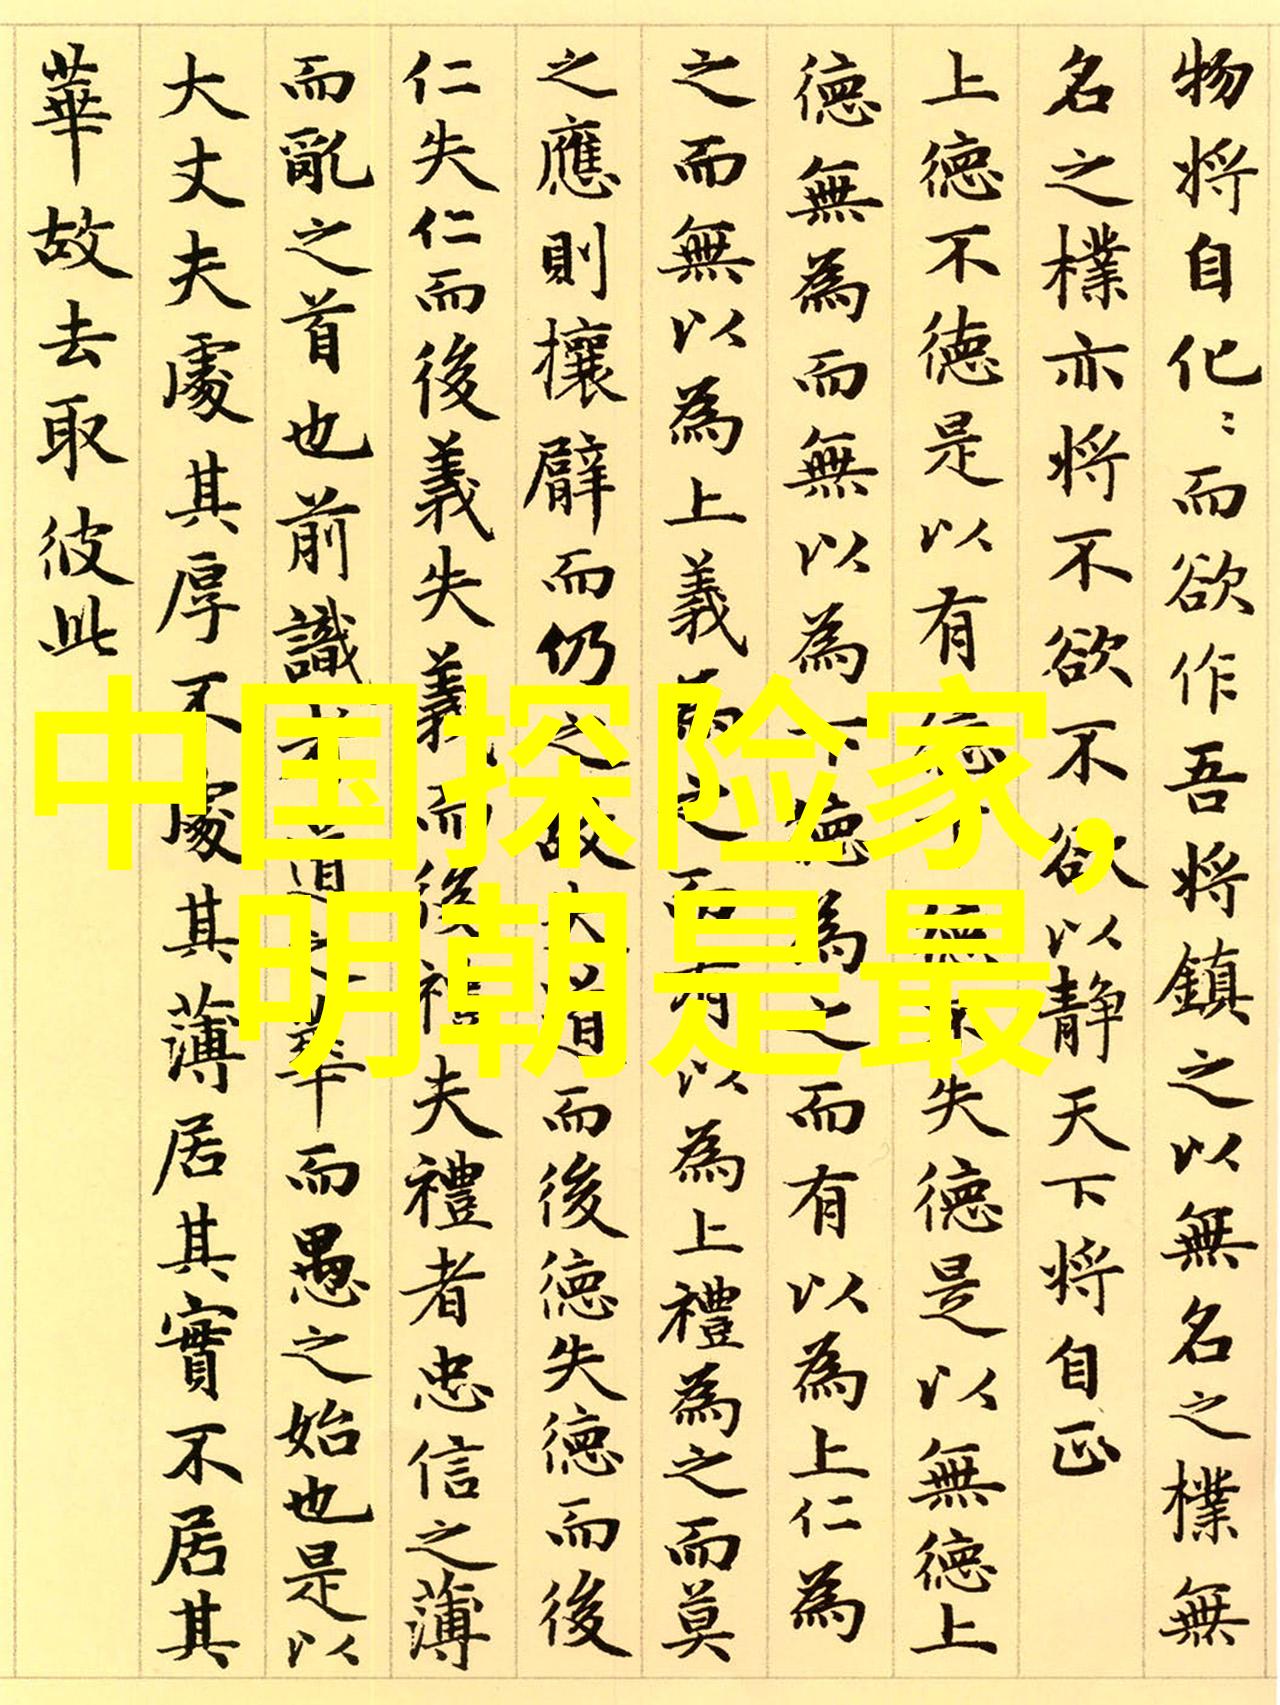 物将自化〻而欲作吾将鎮之以無名之樸無
名之樸亦将不欲不欲以静天下将自正
上德不德是以有德下德不失德是以無德上
德無為而無以為下德為之而有以為上仁為
之而無以為上義為之而有以為上禮為之而莫
之應則攘臂而仍之故大道而後德失德而後
仁失仁而後義失義而後禮夫禮者忠信之薄
而亂之首也前識者道之華而愚之始也是以
大丈夫處其厚不處其薄居其實不居其
華故去取彼此
中国探险家,
明朝是最